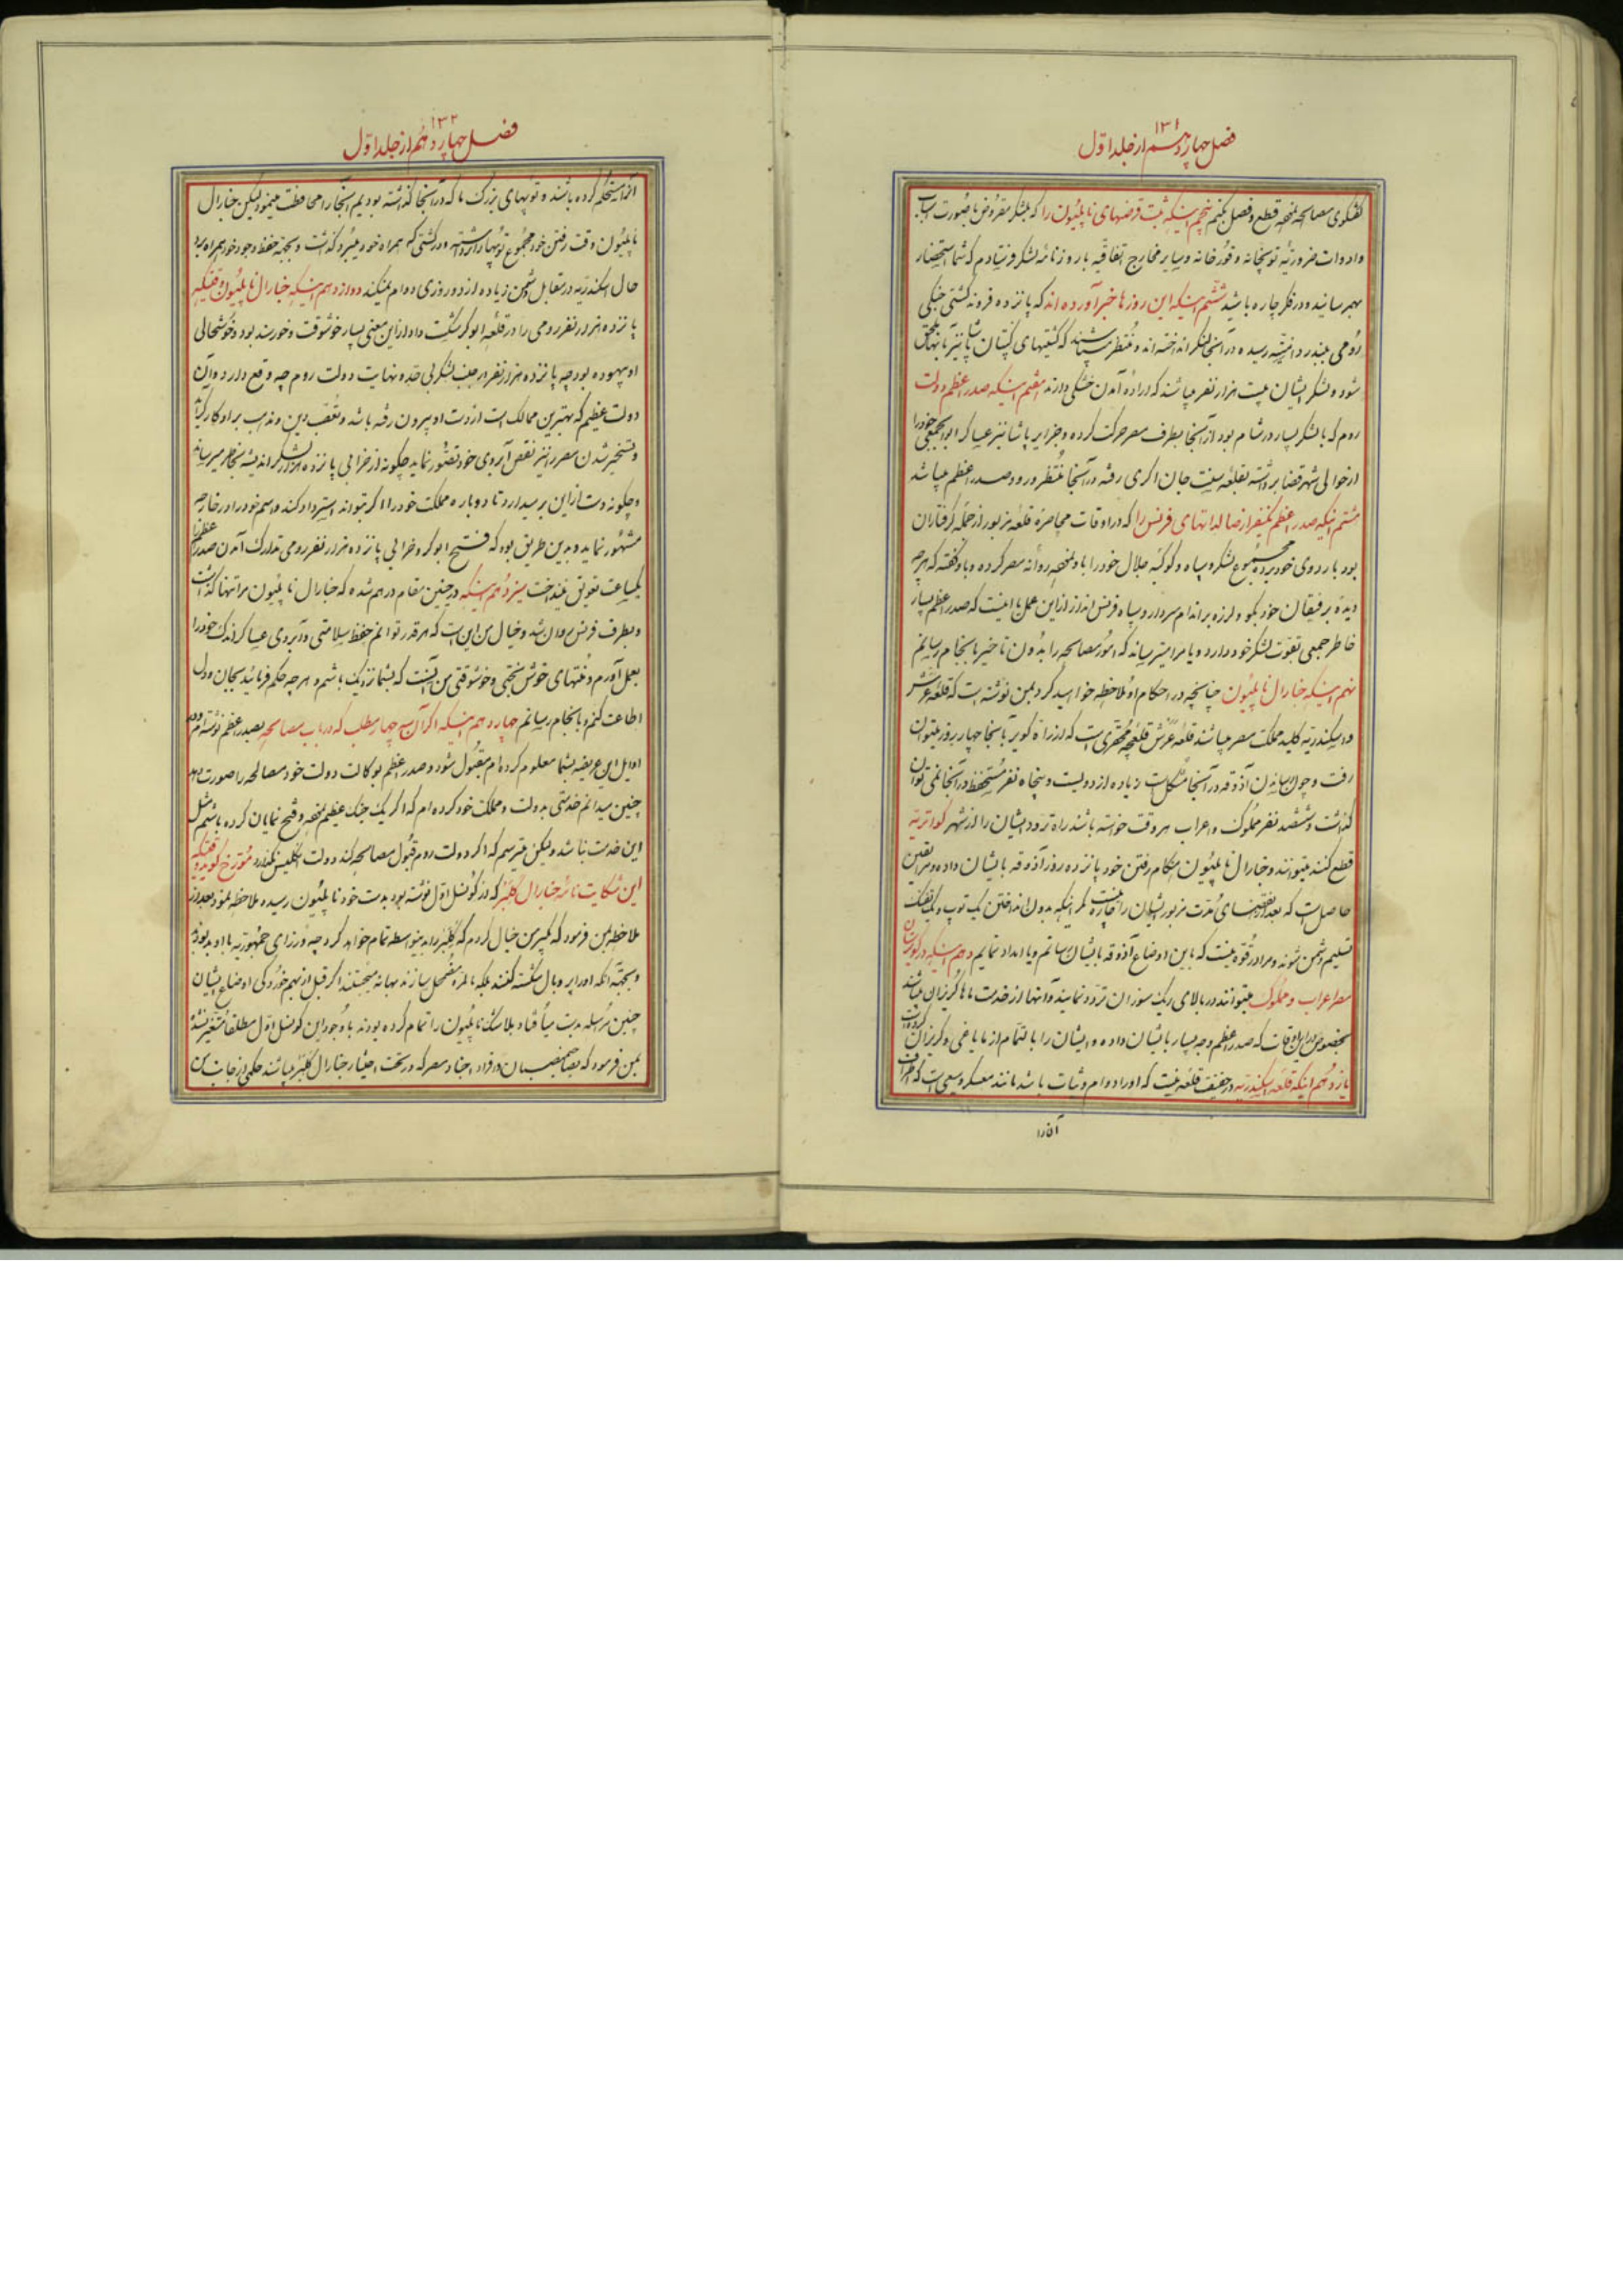 ۱۳۱
فصل چهاردهم از جلد اول
گفتگوی مصالحه نتیجه قطع و فصل بکنم پنجم اینکه ثبت قرضهای ناپلیون را که بلشکر مقروض با صورت اسباب
و ادوات ضروریه توپخانه و قورخانه و سایر مخارج اتفاقیه با روزنامه لشکر فرستادم که شما استحضار
بهم رسانیده در فکر چاره باشید ششم اینکه این روزها خبر آورده اند که پانزده فروند کشتی جنگی
رومی ببندر دمیته رسیده در آنجا لنگر انداخته اند و منتظر میباشند که کشتیهای کپتان پاشا نیز بآنها ملحق
شود و لشکر ایشان بیست هزار نفر میباشند که اراده آمدن خشکی دارند هفتم اینکه صدر اعظم دولت
روم که با لشکر بسیار در شام بود از آنجا بطرف مصر حرکت کرده و جزایر پاشا نیز عساکر ابوابجمعی خود را
از حوالی شهر قضا برداشته بقلعه سنت جان اکری رفته در آنجا منتظر ورود صدر اعظم میباشد
هشتم اینکه صدر اعظم یکنفر از صالداتهای فرنس را که در اوقات محاصره قلعه مزبور از جمله گرفتاران
بود باردوی خود برده مجموع لشکر و سپاه و کوکبه جلال خود را باو نموده روانه مصر کرده و باو گفته که هر چه
دیده برفیقان خود بگو و لرزه بر اندام سردار و سپاه فرنس انداز از این عمل یا اینست که صدر اعظم بسیار
خاطر جمعی بقوت لشکر خود دارد و یا مرا میترساند که امور مصالحه را بدون تاخیر بانجام رسانم
نهم اینکه جنارال ناپلیون چنانچه در احکام او ملاحظه خواهید کرد بمن نوشته است که قلعه عرش
و اسکندریه کلید مملکت مصر میباشند قلعه عرش قلعچه محقری است که از راه کویر بآنجا چهار روز میتوان
رفت و چون رسانیدن آذوقه در آنجا مشکل است زیاده از دویست و پنجاه نفر مستحفظ در آنجا نمی توان
گذاشت و ششصد نفر مملوک و اعراب هر وقت خواسته باشند راه تردد ایشان را از شهر کواتریه
قطع کنند میتوانند و جنارال ناپلیون هنگام رفتن خود پانزده روز آذوقه بایشان داده و مرا یقین
حاصل است که بعد از انقضای مدت مزبور ایشان را چاره نیست مگر اینکه بدون انداختن یک توپ و یک تفنگ
تسلیم دشمن شوند و مرا در قوه نیست که باین اوضاع آذوقه بایشان رسانم و یا امداد نمایم دهم اینکه در کویرستان
مصر اعراب و مملوک میتوانند در بالای ریگ سوزان تردد نمایند و آنها از خدمت ما گریزان میباشند
بخصوص در این اوقات که صدر اعظم وجه بسیار بایشان داده و ایشان را بالتمام از ما یاغی و گریزان کرده است
یازدهم اینکه قلعه اسکندریه در حقیقت قلعه نیست که او را دوام و ثبات باشد مانند معسکر وسیعی است که اطراف
آنرا
۱۳۲
فصل چهاردهم از جلد اول
آنرا مستحکم کرده باشند و توپهای بزرگ ما که در آنجا گذاشته بودیم آنجا را محافظت مینمود لیکن جنارال
ناپلیون وقت رفتن خود مجموع توپها را برداشته و در کشتی که همراه خود میبرد گذاشت و بجهة حفظ وجود خود همراه برد
حال اسکندریه در مقابل دشمن زیاده از دو روزی دوام نمیکند دوازدهم اینکه جنارال ناپلیون وقتیکه
پانزده هزار نفر رومی را در قلعه ابوکر شکست داد از این معنی بسیار خوشوقت و خورسند بود و خوشحالی
او بیهوده بود چه پانزده هزار نفر در جنب لشکر بی حد و نهایت دولت روم چه وقع دارد و آن
دولت عظیم که بهترین ممالک است از دست او بیرون رفته باشد و تعصب دین و مذهب بر او کارگر آید
و تسخیر شدن مصر را نیز نقص آبروی خود تصور نماید چگونه از خرابی پانزده هزار لشکر اندیشه بخاطر میرساند
و چگونه دست از این بر میدارد تا دوباره مملکت خود را اگر بتواند استرداد کند و اسم خود را در خارجه
مشهور نماید و بدین طریق بود که فتح ابوکر و خرابی پانزده هزار نفر رومی تدارک آمدن صدر اعظم را
یکساعت بتعویق نینداخت سیزدهم اینکه در چنین مقام درهم شده که جنارال ناپلیون مرا تنها گذاشت
و بطرف فرنس روان شد و خیال من این است که هر قدر توانم حفظ سلامتی و آبروی عساکر اندک خود را
بعمل آورم و منتهای خوش بختی و خوشوقتی من آنست که بشما نزدیک باشم و هر چه حکم فرمائید بجان و دل
اطاعت کنم و بانجام رسانم چهاردهم اینکه اگر آن سه چهار مطلب که در باب مصالحه بصدر اعظم نوشته ام و در
اوایل این عریضه بشما معلوم کرده ام مقبول شود و صدر اعظم بوکالت دولت خود مصالحه را صورت دهد
چنین میدانم خدمتی بدولت و مملکت خود کرده ام که اگر یک جنگ عظیم نموده و فتح نمایان کرده باشم مثل
این خدمت نباشد ولیکن میترسم که اگر دولت روم قبول مصالحه کند دولت انگلیس نگذارد مورخ گوید وقتیکه
این شکایت نامه جنارال کلبیر که در کونسل اول نوشته بود بدست خود ناپلیون رسیده ملاحظه نمود بعد از
ملاحظه بمن فرمود که بکیرین خیال کردم که کلبیر را بدینواسطه تمام خواهد کرد چه وزرای جمهوریه با او بد بودند
و بجهة آنکه او را پر و بال شکسته کنند بلکه بالمره مضمحل سازند بهانه میجستند اگر قبل از بهم خوردگی اوضاع ایشان
چنین مرسله بدست میافتاد بلاشک ناپلیون را تمام کرده بودند با وجود این کونسل اول مطلقا متغیر نشده
بمن فرمود که بصاحبمنصبان و افراد اجناد مصر که در تحت اختیار جنارال کلبیر میباشند حکمی از جانب من